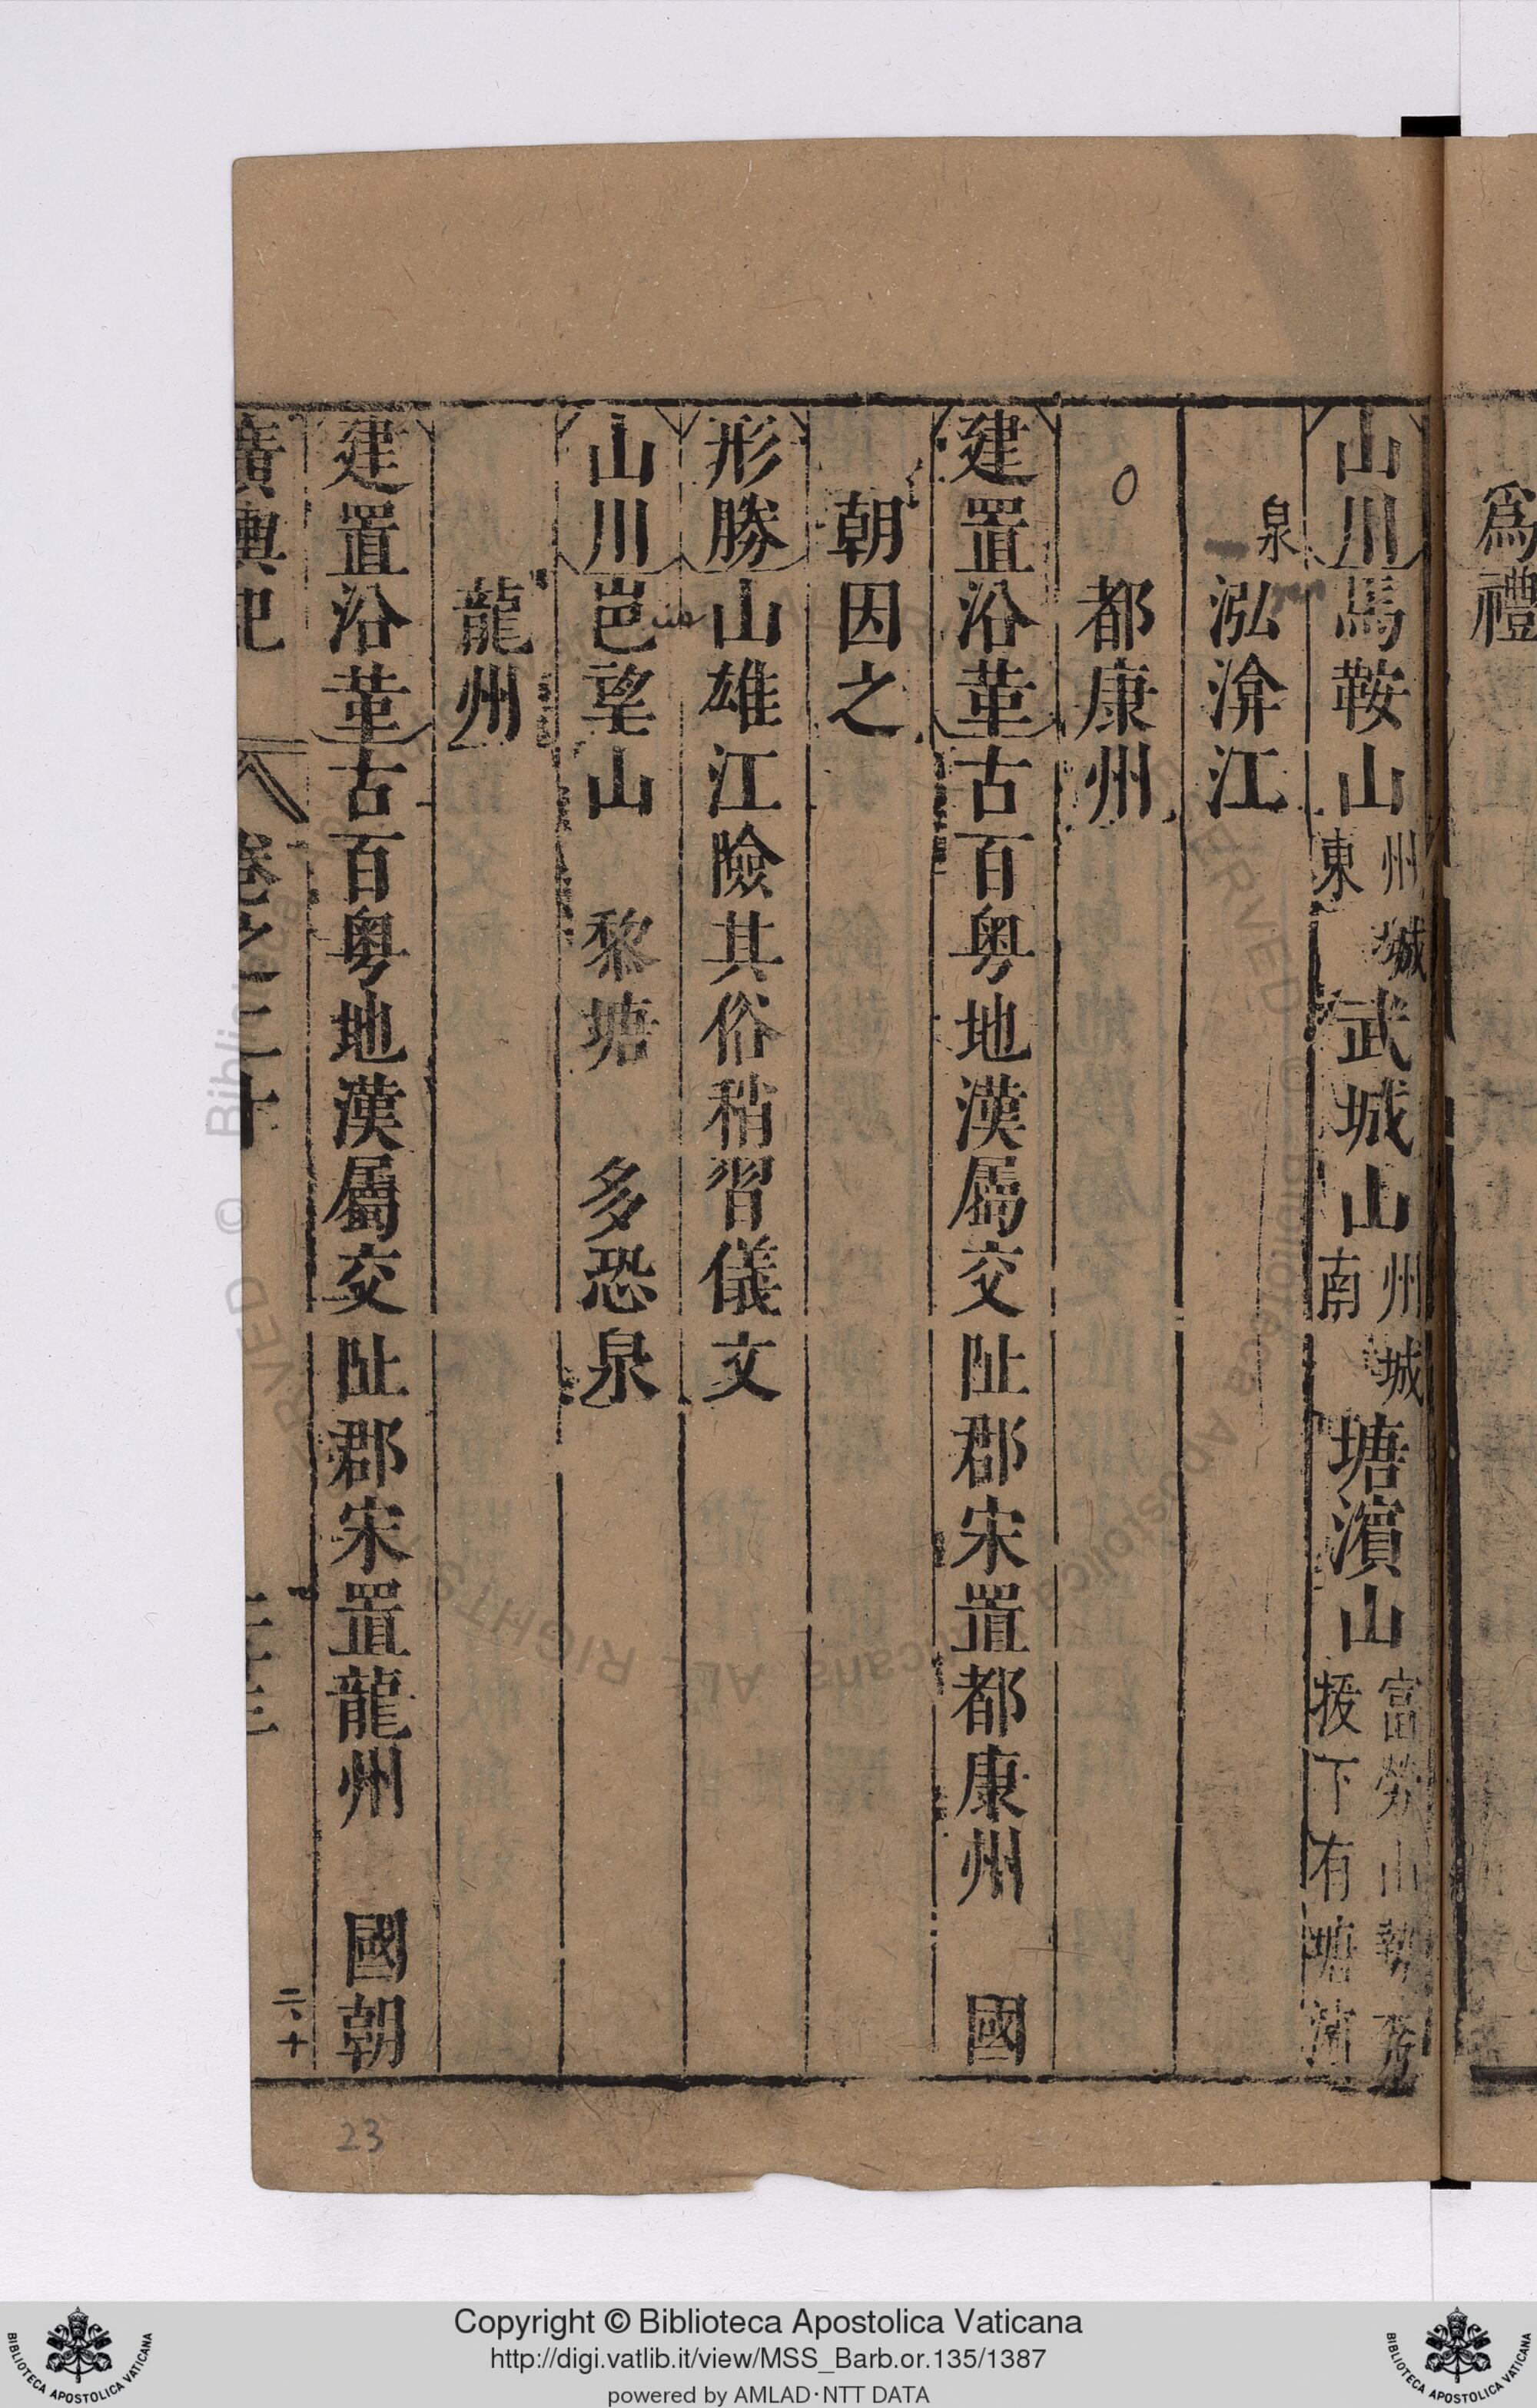 爲禮
山川馬鞍山州城東武城山州城南塘濱山富勞山勢秀拔下有塘濱
泉泓渰江
都康州
建置沿革古百粤地漢屬交阯郡宋置都康州 國
朝因之
形勝山雄江險其俗稍習儀文
山川岜望山 黎塘 多恐泉
龍州
建置沿革古百粤地漢屬交阯郡宋置龍州 國朝
廣輿記 卷之二十
二十
23
Copyright © Biblioteca Apostolica Vaticana
http://digi.vatlib.it/view/MSS_Barb.or.135/1387
powered by AMLAD·NTT DATA
BIBLIOTECA APOSTOLICA VATICANA
BIBLIOTECA APOSTOLICA VATICANA